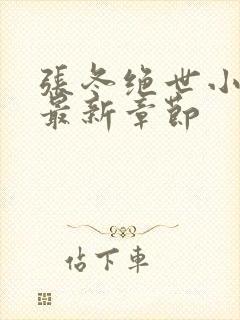 張冬绝世小
最新章節
佔下車